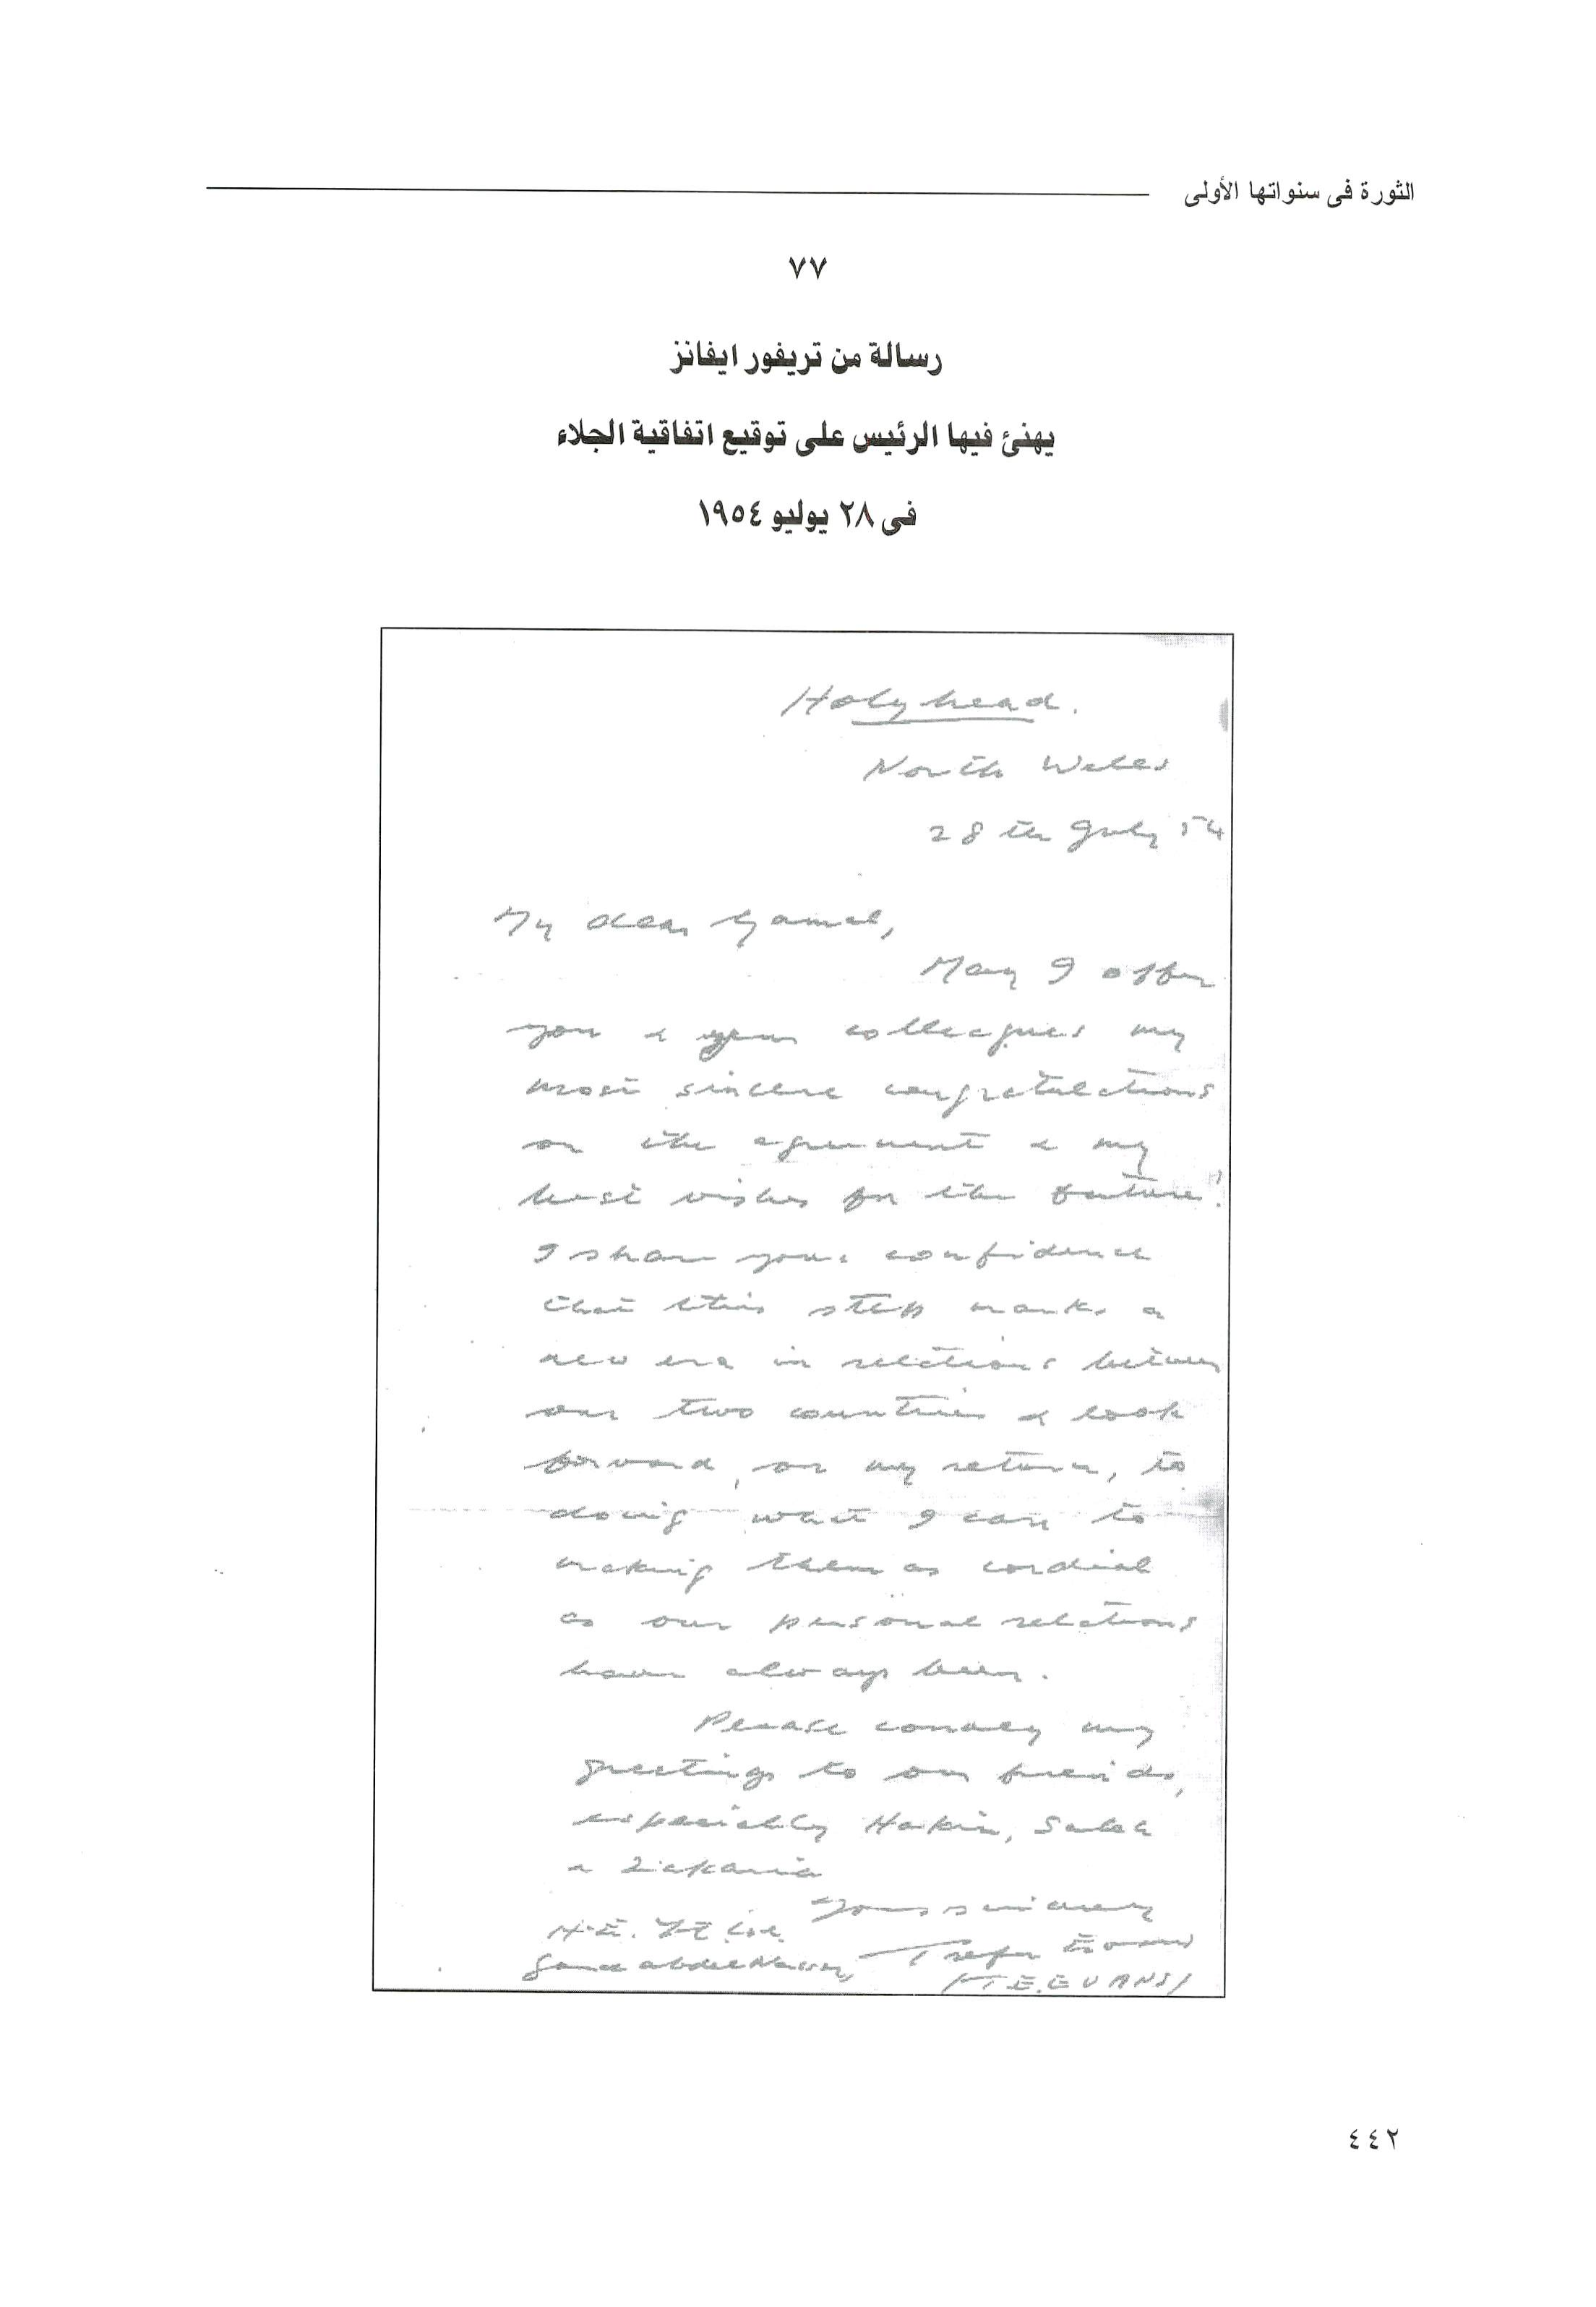 الثورة فى سنواتها الأولى
٧٧
رسالة من تريفور ايفانز
يهنئ فيها الرئيس على توقيع اتفاقية الجلاء
فى ٢٨ يوليو ١٩٥٤
Holyhead.
North Wales
28th July 54
My dear Gamal,
May I offer
you & your colleagues my
most sincere congratulations
on the agreement & my
best wishes for the future!
I share your confidence
that this step marks a
new era in relations between
our two countries & look
forward, on my return, to
doing what I can to
making them as cordial
as our personal relations
have always been.
Please convey my
greetings to our friends,
especially Hakim, Salah
& Zakaria
Yours sincerely
H.E. Lt. Col.
Gamal Abdel Nasser,
Trefor Evans
(T.E. EVANS)
٤٤٢